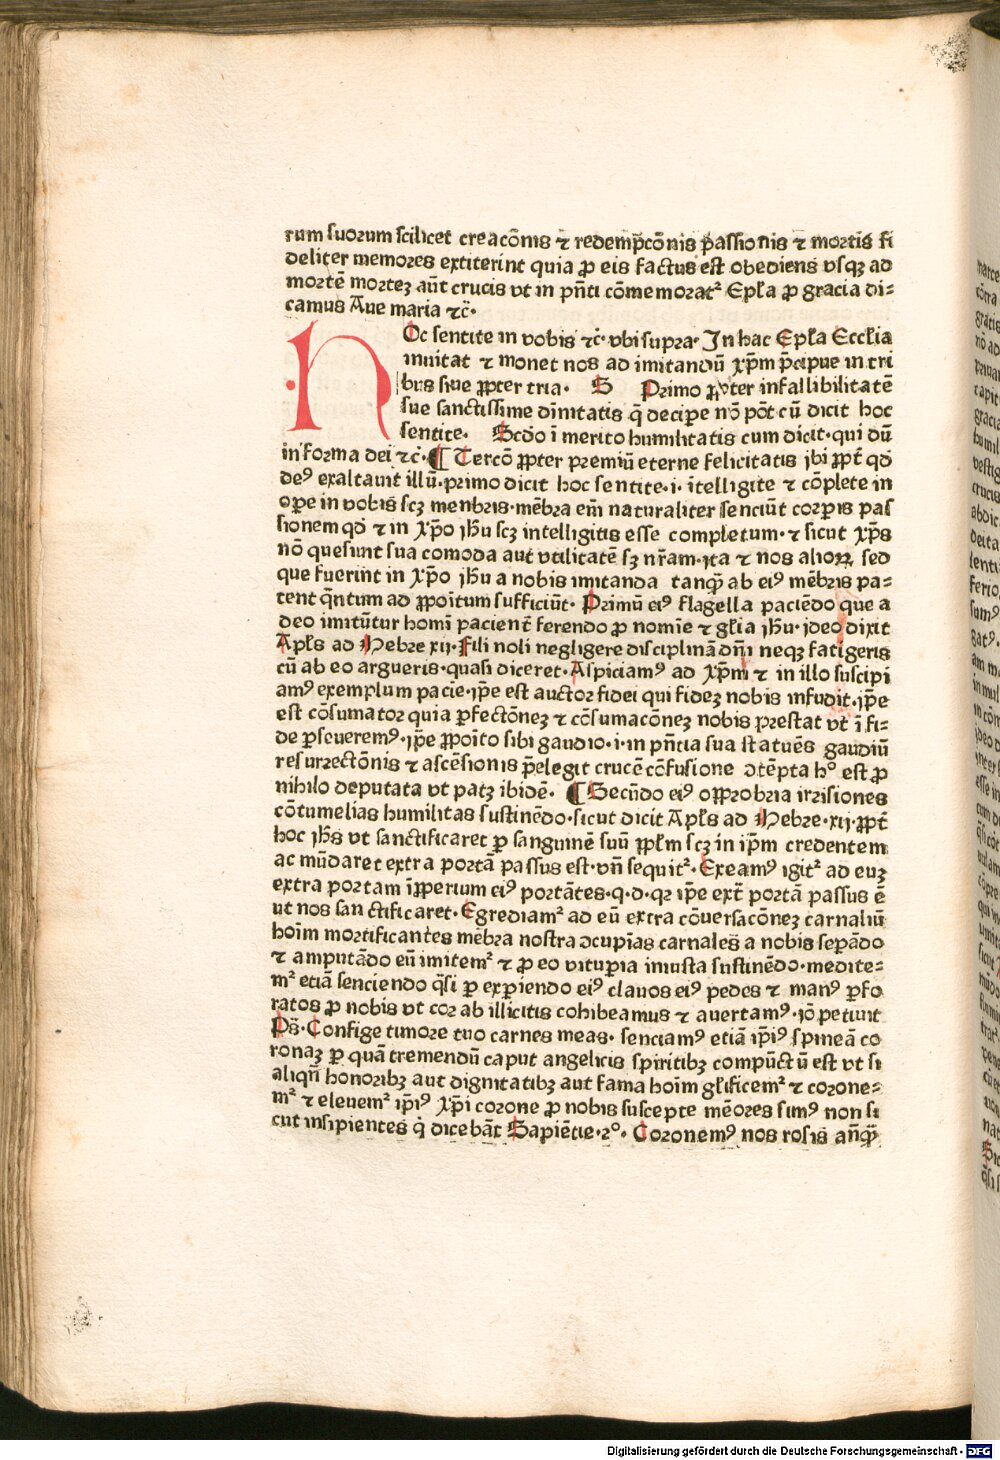 rum suorum scilicet creacōnis ⁊ redemp̄cōnis passionis ⁊ mortis fi
deliter memores extiterint quia ꝓ eis factus est obediens vsqꝫ ad
mortē morteꝫ aūt crucis vt in pn̄ti cōmemorat² Epl̄a ꝓ gracia di⸗
camus Aue maria ⁊c̄·
HOc sentite in vobis ⁊c̄· vbi supra· In hac Epl̄a Eccl̄ia
inuitat ⁊ monet nos ad imitandū xp̄m p̄cipue in tri
bus siue ꝓpter tria· S Primo ꝓpter infallibilitatē
sue sanctissime diuītatis q̄ decipe nō pōt cū dicit hoc
sentite· Scdo ī merito humilitatis cum dicit· qui dū
in forma dei ⁊c̄· ¶ Tercō ꝓpter premiū eterne felicitatis ibi ꝓpt̄ qd
deꝰ exaltauit illū· primo dicit hoc sentite· i· ītelligite ⁊ cōplete in
oꝑe in vobis scꝫ menbris· mēbra em̄ naturaliter senciūt corꝑis pas
sionem qd ⁊ in xp̄o ih̄u scꝫ intelligitis esse completum· ⁊ sicut xp̄s
nō quesiuit sua comoda aut vtilitatē sꝫ nr̄am· ita ⁊ nos alioꝝ sed
que fuerint in xp̄o ih̄u a nobis imitanda tanqꝫ ab eiꝰ mēbris pa⸗
tent q̄ntum ad ꝓpoītum sufficiūt· Primū eiꝰ flagella paciēdo que a
deo imitūtur homī pacient̄ ferendo ꝓ nomīe ⁊ gl̄ia ih̄u· ideo dixit
Apl̄s ad Hebre xij· Fili noli negligere disciplinā dn̄i neqꝫ fatigeris
cū ab eo argueris· quasi diceret· Aspiciamꝰ ad xp̄m ⁊ in illo suscipi
amꝰ exemplum pacie· ip̄e est auctor fidei qui fideꝫ nobis infudit· ip̄e
est cōsumator quia ꝑfectōneꝫ ⁊ cōsumacōneꝫ nobis prestat vt ī fi⸗
de ꝑseueremꝰ· ip̄e ꝓpoīto sibi gaudio· i· in pn̄tia sua statuēs gaudiū
resurrectōnis ⁊ ascēsionis p̄elegit crucē cōfusione ɔtēpta hº est ꝓ
nihilo deputata vt patꝫ ibidē· ¶ Secūdo eiꝰ opprobria irrisiones
cōtumelias humilitas sustinēdo· sicut dicit Apl̄s ad Hebre· xij· ꝓpt̄
hoc ih̄s vt sanctificaret ꝑ sanguinē suū ꝓpl̄m scꝫ in ip̄m credentem
ac mūdaret extra portā passus est· vn̄ sequit²· Exeamꝰ igit² ad euꝫ
extra portam īꝓperium eiꝰ portātes· q· d· qꝛ ip̄e ext̄ portā passus ē
ut nos sanctificaret· Egrediam² ad eū extra cōuersacōneꝫ carnaliū
hoīm mortificantes mēbra nostra ɔcupīas carnales a nobis sepādo
⁊ amputādo eū imitem² ⁊ ꝓ eo vituꝑia iniusta sustinēdo· medite⸗
m² etiā senciendo q̄si ꝑ exꝑiendo eiꝰ clauos eiꝰ pedes ⁊ manꝰ ꝑfo
ratos ꝓ nobis vt cor ab illicitis cohibeamus ⁊ auertamꝰ· iō petiuit
Ps̄· Confige timore tuo carnes meas· senciamꝰ etiā ip̄iꝰ spineā co
ronaꝫ ꝑ quā tremendū caput angelicis spiritibꝫ compūctū est vt si
aliqn̄ honoribꝫ aut dignitatibꝫ aut fama hoīm gl̄ificem² ⁊ corone⸗
m² ⁊ eleuem² ip̄iꝰ xp̄i corone ꝓ nobis suscepte mēores simꝰ non si
cut insipientes q̄ dicebāt Sapiētie· 2º· Coronemꝰ nos rosis an̄qꝫ
Digitalisierung gefördert durch die Deutsche Forschungsgemeinschaft - DFG